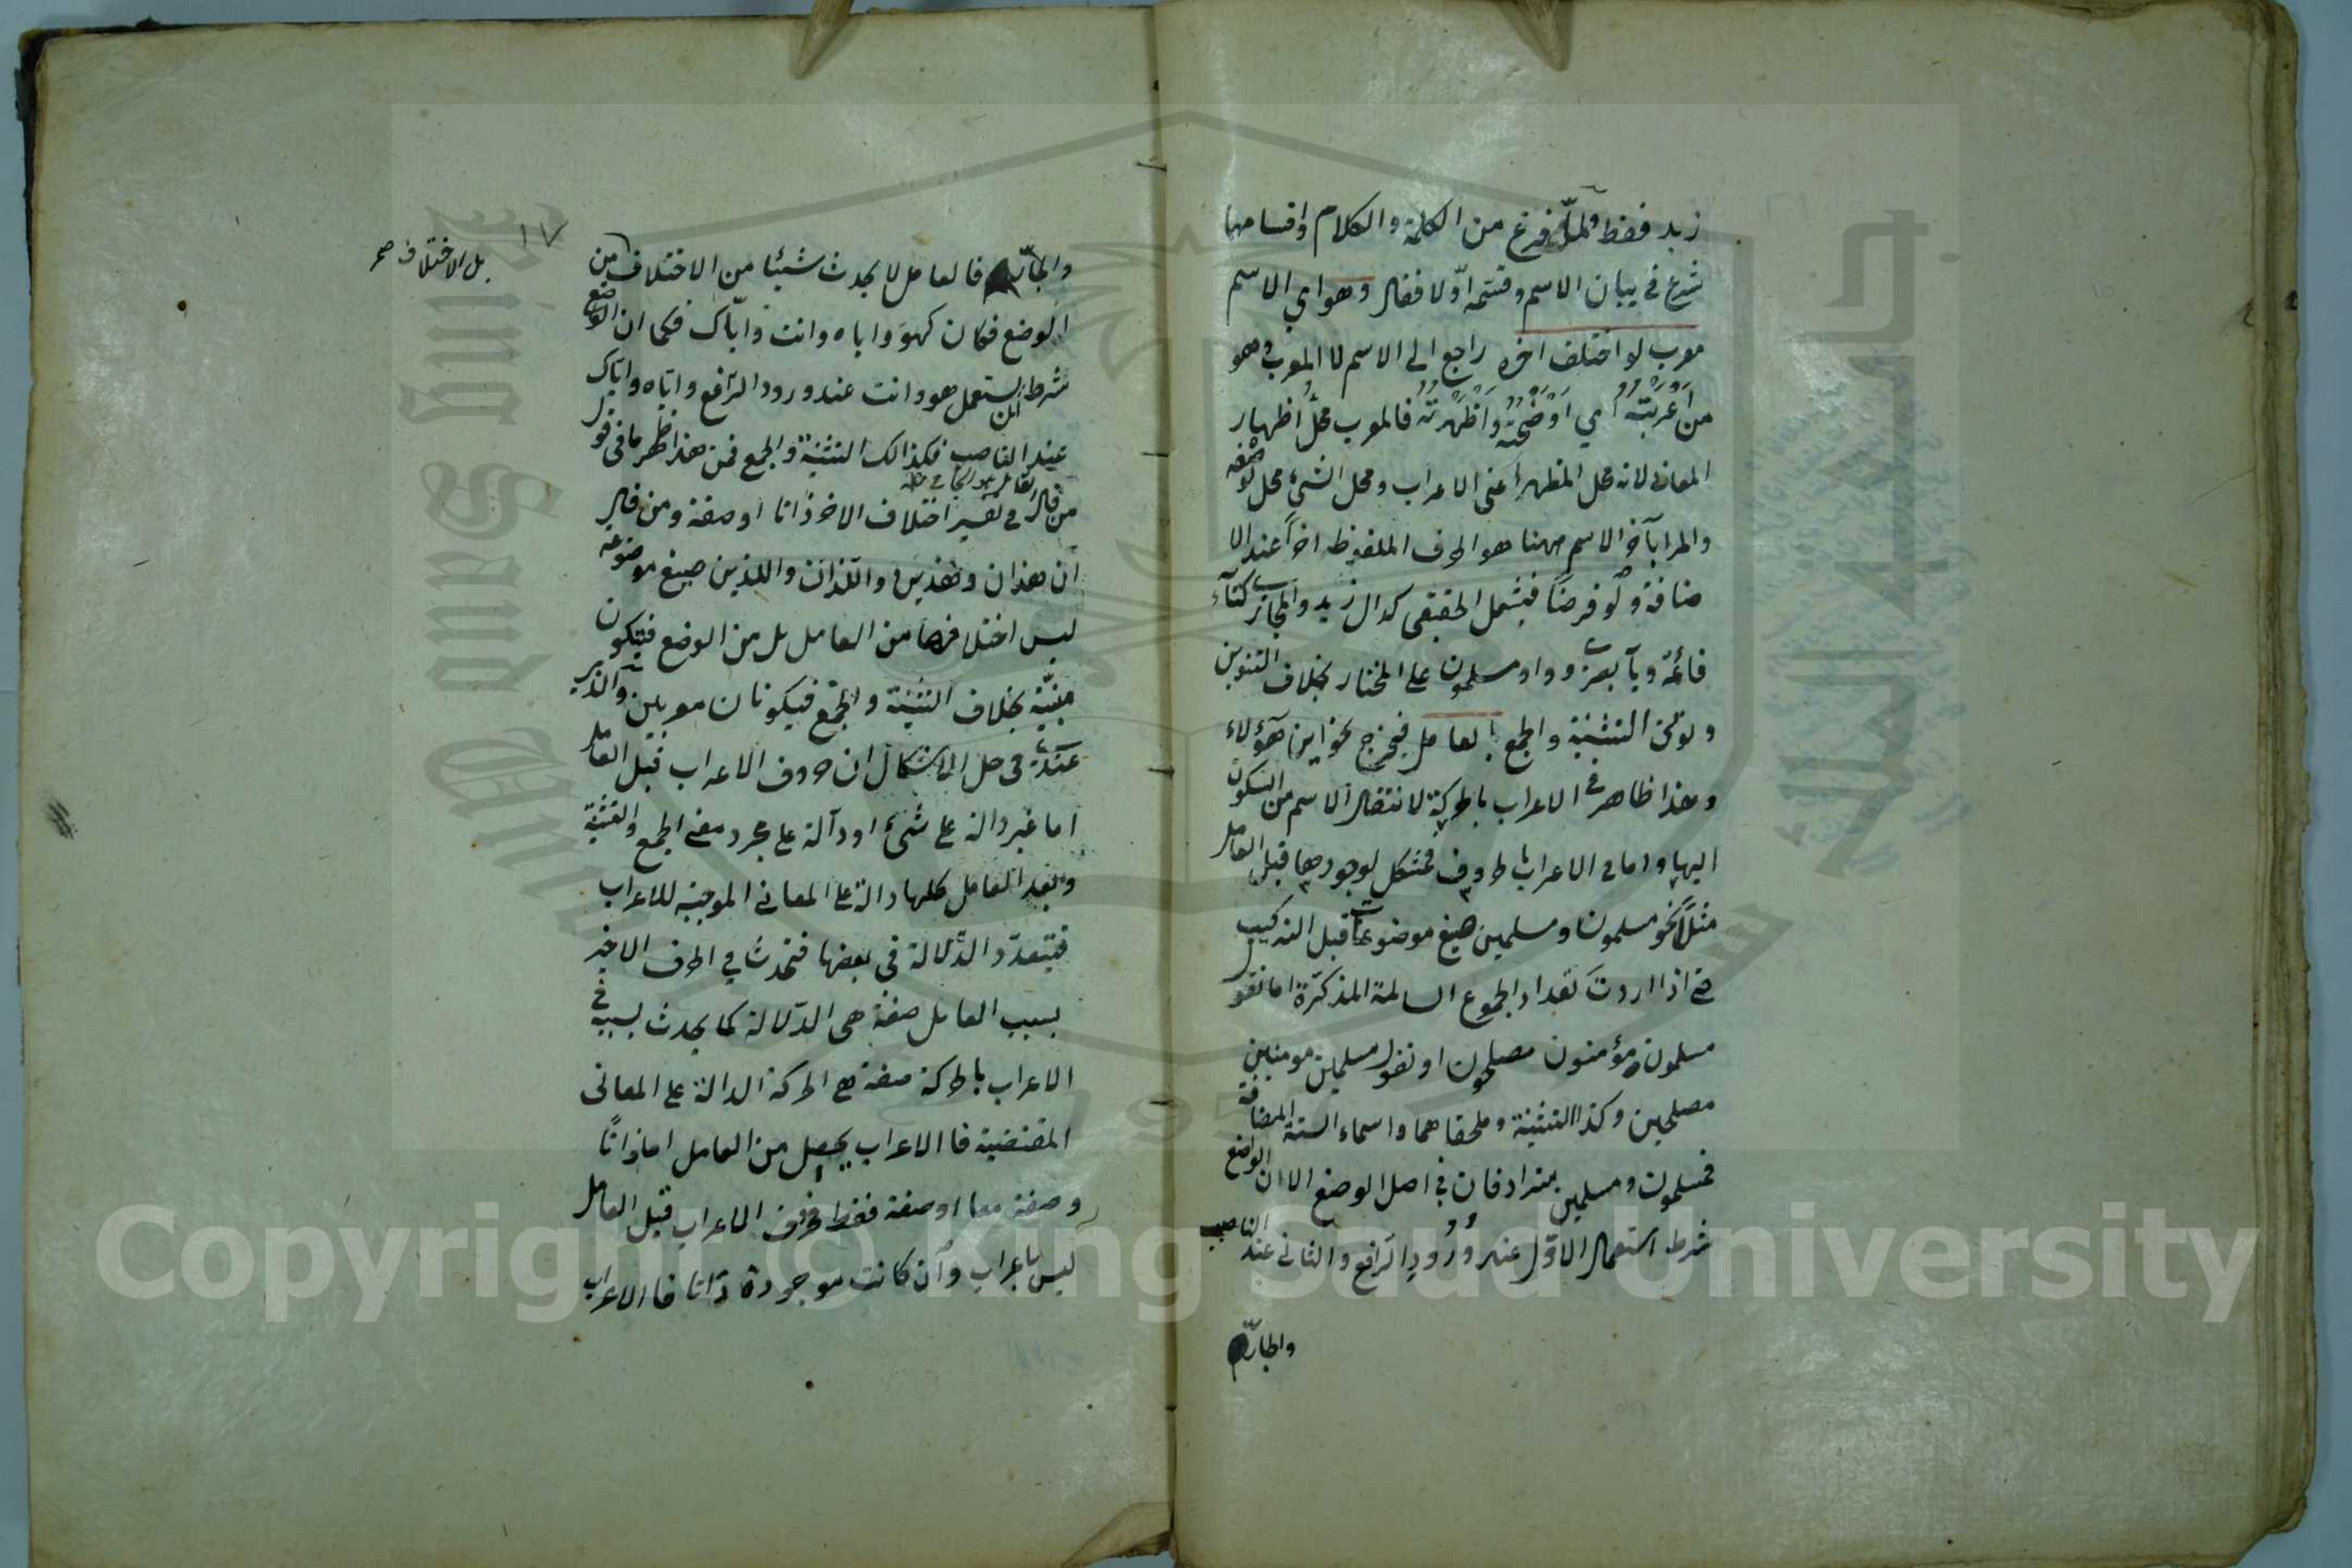 زيد فقط ولمّا فرغ من الكلمة والكلام واقسامها
شرع في بيان الاسم وقسمه اوّلا فقال وهو اي الاسم
معرب لو اختلف اخره راجع الى الاسم لا المعرب وهو
من اَعْرَبْتُهُ اي اَوْضَحْتُهُ وَاَظْهَرْتُهُ فالمعرب محلُّ اظهار
المعانى لانه محل المظهر اَعنى الاعراب ومحل الشئ محل لوصفه
والمراد بآخر الاسم ههنا هو الحرف الملفوظ اخراً عند الا
ضافة ولو فرضًا فيشمل الحقيقى كدال زيد والمجازى كتآء
قائمة ويآ بصرىّ وواو مسلمون على المختار بخلاف التنوين
ونونى التثنية والجمع بالعامل فيخرج نحو اين هٓؤلاء
وهذا ظاهر في الاعراب بالحركة لانتقال الاسم من السكون
اليها واما في الاعراب بالحروف فمشكل لوجودها قبل العامل
مثلاً نحو مسلمون ومسلمين صيغ موضوعات قبل التركيب
حتى اذا اردتَ تعداد الجموع السالمة المذكرة اما تقول
مسلمون مؤمنون مصلحون او تقول مسلمين مومنين
مصلحين وكذا التثنية وملحقاهما واسماء الستة المضافة
فمسلمون ومسلمين مترادفان في اصل الوضع الا ان الواضع
شرط استعمال الاوّل عند وُرُودِ الرّافع والثانى عند الناصب
والجارّ
١٧
والجارّ فالعامل لا يحدث شيئا من الاختلاف من
بل الاختلاف صح
الوضع فكان كهوَ واياه وانت وايّاك فكما ان الواضع
شرط ان يستعمل هو وانت عند ورود الرّافع وايّاه واياك
عند الناصب فكذالك التثنية والجمع فمن هذا ظهر ما فى قول
من قال في تفسير اختلاف الاخر ذاتا او صفة ومن قال
ان هذان وهذين واللّذان واللذين صيغ موضوعة
ليس اختلافها من العامل بل من الوضع فيكون
مبنيّة بخلاف التثنية والجمع فيكونان معربين والذى
عندى فى حل الاشكال ان حروف الاعراب قبل العامل
اما غير دالة على شئ او دآلة على مجرد معنى الجمع والتثنية
وبعد العامل كلها دالة على المعانى الموجبة للاعراب
فيتعدّد الدّلالة فى بعضها فتحدث في الحرف الاخير
بسبب العامل صفة هى الدّلالة كما يحدث بسببه في
الاعراب بالحركة صفة هى الحركة الدالة على المعانى
المقتضية فالاعراب يحصل من العامل اما ذاتًا
وصفة معا او صفة فقط فحرف الاعراب قبل العامل
ليس باعراب وان كانت موجودة ذاتا فالاعراب
Copyright © King Saud University